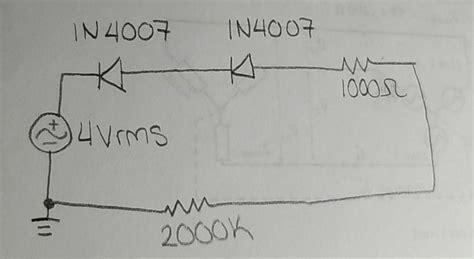 IN4007 IN4007
1000Ω
+
4Vrms
-
2000K